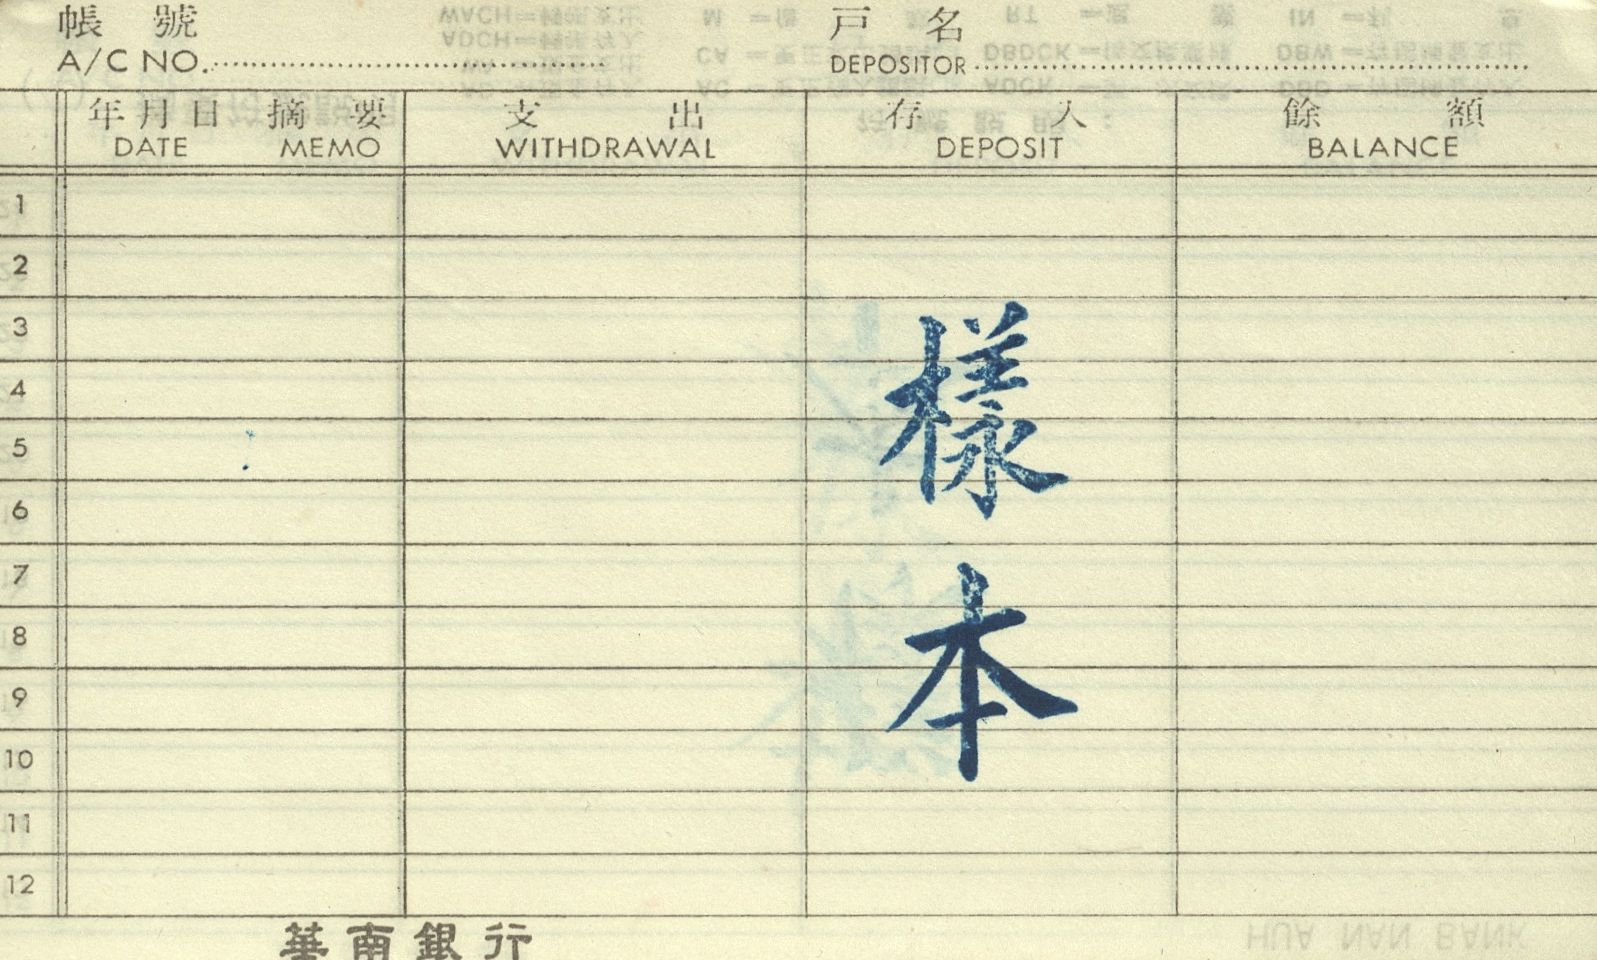 帳 號 戶 名
A/C NO. DEPOSITOR
年月日 摘要 支出 存入 餘額
DATE MEMO WITHDRAWAL DEPOSIT BALANCE
1
2
3
4
5
6
7
8
9
10
11
12
樣
本
華南銀行
HUA NAN BANK